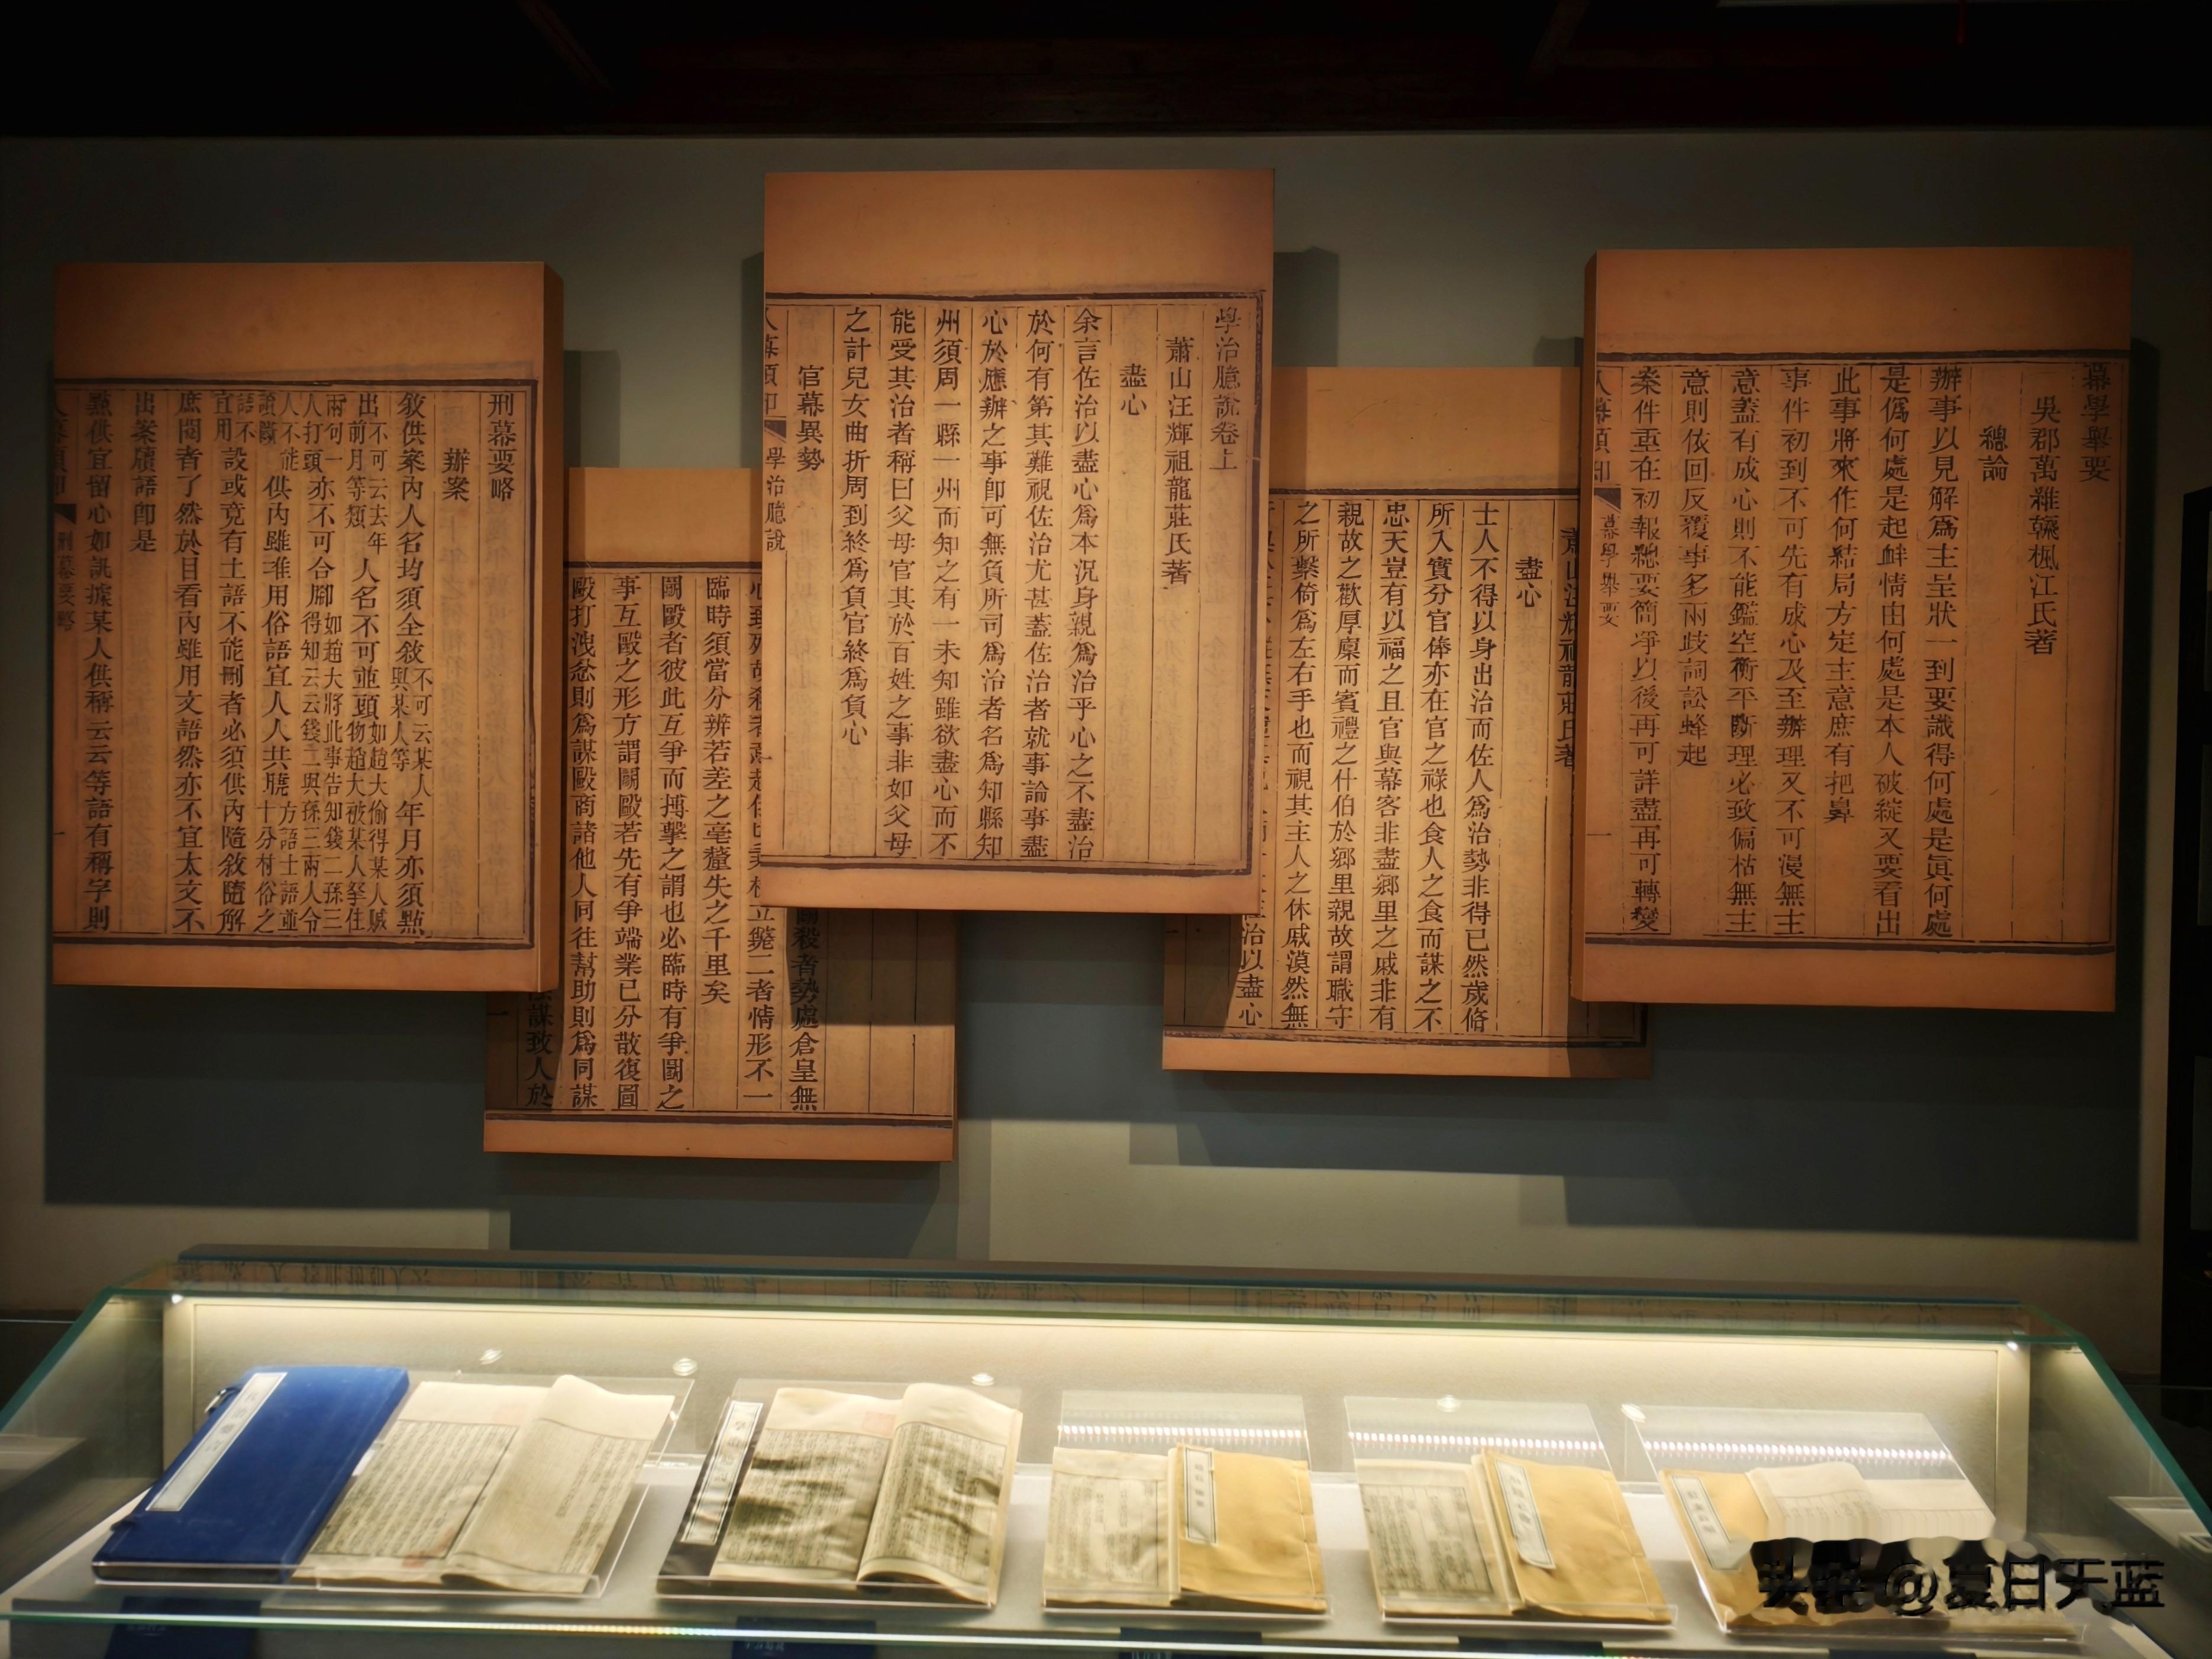 幕學舉要
吳郡萬維鶾楓江氏著
總論
辦事以見解爲主呈狀一到要識得何處是眞何處
是僞何處是起衅情由何處是本人破綻又要看出
此事將來作何結局方定主意庶有把鼻
事件初到不可先有成心及至辦理又不可漫無主
意蓋有成心則不能鑑空衡平斷理必致偏枯無主
意則依回反覆事多兩歧詞訟蜂起
案件重在初報總要簡淨以後再可詳盡再可轉變
幕學舉要
蕭山汪輝祖龍莊氏著
盡心
士人不得以身出治而佐人爲治勢非得已然歲脩
所入實分官俸亦在官之祿也食人之食而謀之不
忠天豈有以福之且官與幕客非盡鄉里之戚非有
親故之歡厚廩而賓禮之什伯於鄉里親故謂職守
之所繫倚爲左右手也而視其主人之休戚漠然無
治以盡心
學治臆說卷上
蕭山汪輝祖龍莊氏著
盡心
余言佐治以盡心爲本況身親爲治乎心之不盡治
於何有第其難視佐治尤甚蓋佐治者就事論事盡
心於應辦之事卽可無負所司爲治者名爲知縣知
州須周一縣一州而知之有一未知雖欲盡心而不
能受其治者稱曰父母官其於百姓之事非如父母
之計兒女曲折周到終爲負官終爲負心
官幕異勢
學治臆說
鬬殺者勢處倉皇無
二者情形不一
臨時須當分辨若差之毫釐失之千里矣
鬬毆者彼此互爭而搏擊之謂也必臨時有爭鬬之
事互毆之形方謂鬬毆若先有爭端業已分散復圖
毆打洩忿則爲謀毆商諸他人同往幫助則爲同謀
謀致人於
刑幕要略
辦案
敘供案內人名均須全敘不可云某人與某人等年月亦須點
出不可云去年前月等類人名不可並頭如趙大偷得某人贓物趙大被某人拏住
兩句一人打頭亦不可合腳如趙大將此事告知錢二孫三得知云云錢二與孫三兩人令
人不能讀斷供內雖准用俗語宜人人共曉方語土語並十分村俗之
語不宜用設或竟有土語不能刪者必須供內隨敘隨解
庶閱者了然於目看內雖用文語然亦不宜太文不
出案牘語卽是
點供宜留心如訊據某人供稱云云等語有稱字則
刑幕要略
头条@夏日天蓝